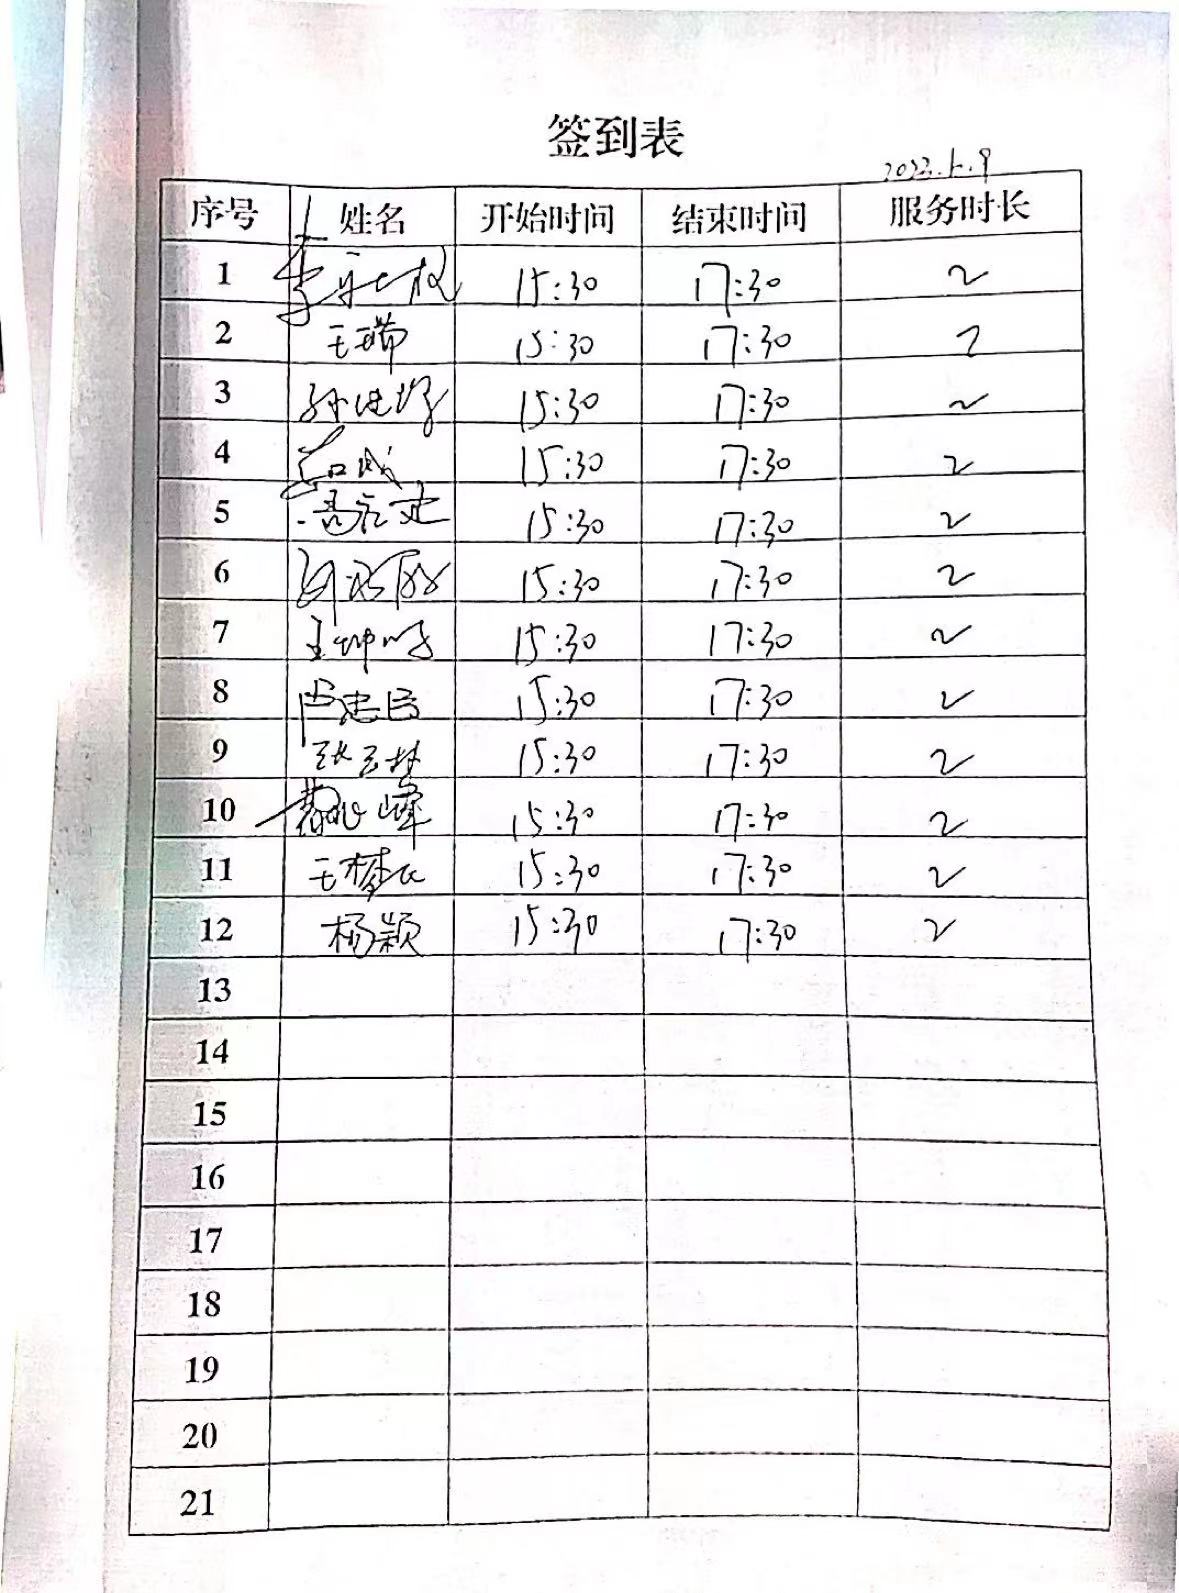 签到表
序号 姓名 开始时间 结束时间 服务时长
1 15:30 17:30 2
2 王瑞 15:30 17:30 2
3 15:30 17:30 2
4 15:30 17:30 2
5 15:30 17:30 2
6 15:30 17:30 2
7 15:30 17:30 2
8 15:30 17:30 2
9 15:30 17:30 2
10 15:30 17:30 2
11 15:30 17:30 2
12 杨颖 15:30 17:30 2
13
14
15
16
17
18
19
20
21